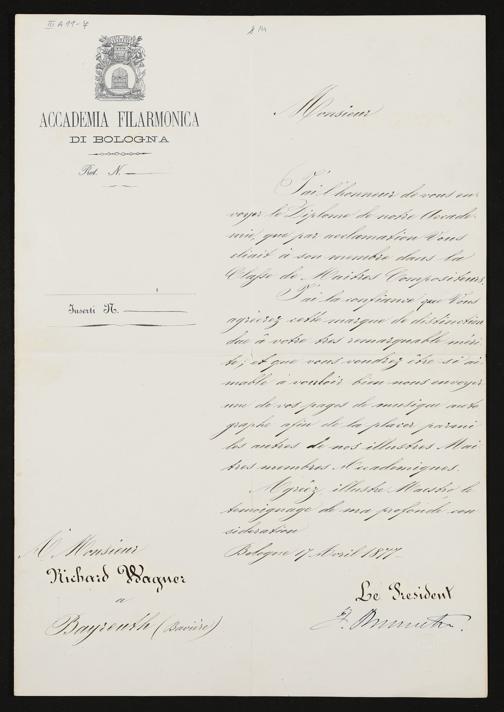 III A 11-7
ACCADEMIA FILARMONICA
DI BOLOGNA
Prot. N.
Inserti N.
Monsieur
J'ai l'honneur de vous en-
voyer le Diplome de notre Accadé-
mie, que par acclamation Vous
élisait à son membre dans la
Classe de Maitres Compositeurs.
J'ai la confiance que Vous
agréerez cette marque de distinction
due à votre tres remarquable méri-
te; et que vous voudrez être si ai-
mable à vouloir bien nous envoyer
une de vos pages de musique auto
graphe afin de la placer parmi
les autres de nos illustres Mai
tres membres Accademiques.
Agréez, illustre Maestro le
temoignage de ma profonde con
sideration
Bologne 17 Avril 1877
A Monsieur
Richard Wagner
a
Bayreuth (Bavière)
Le President